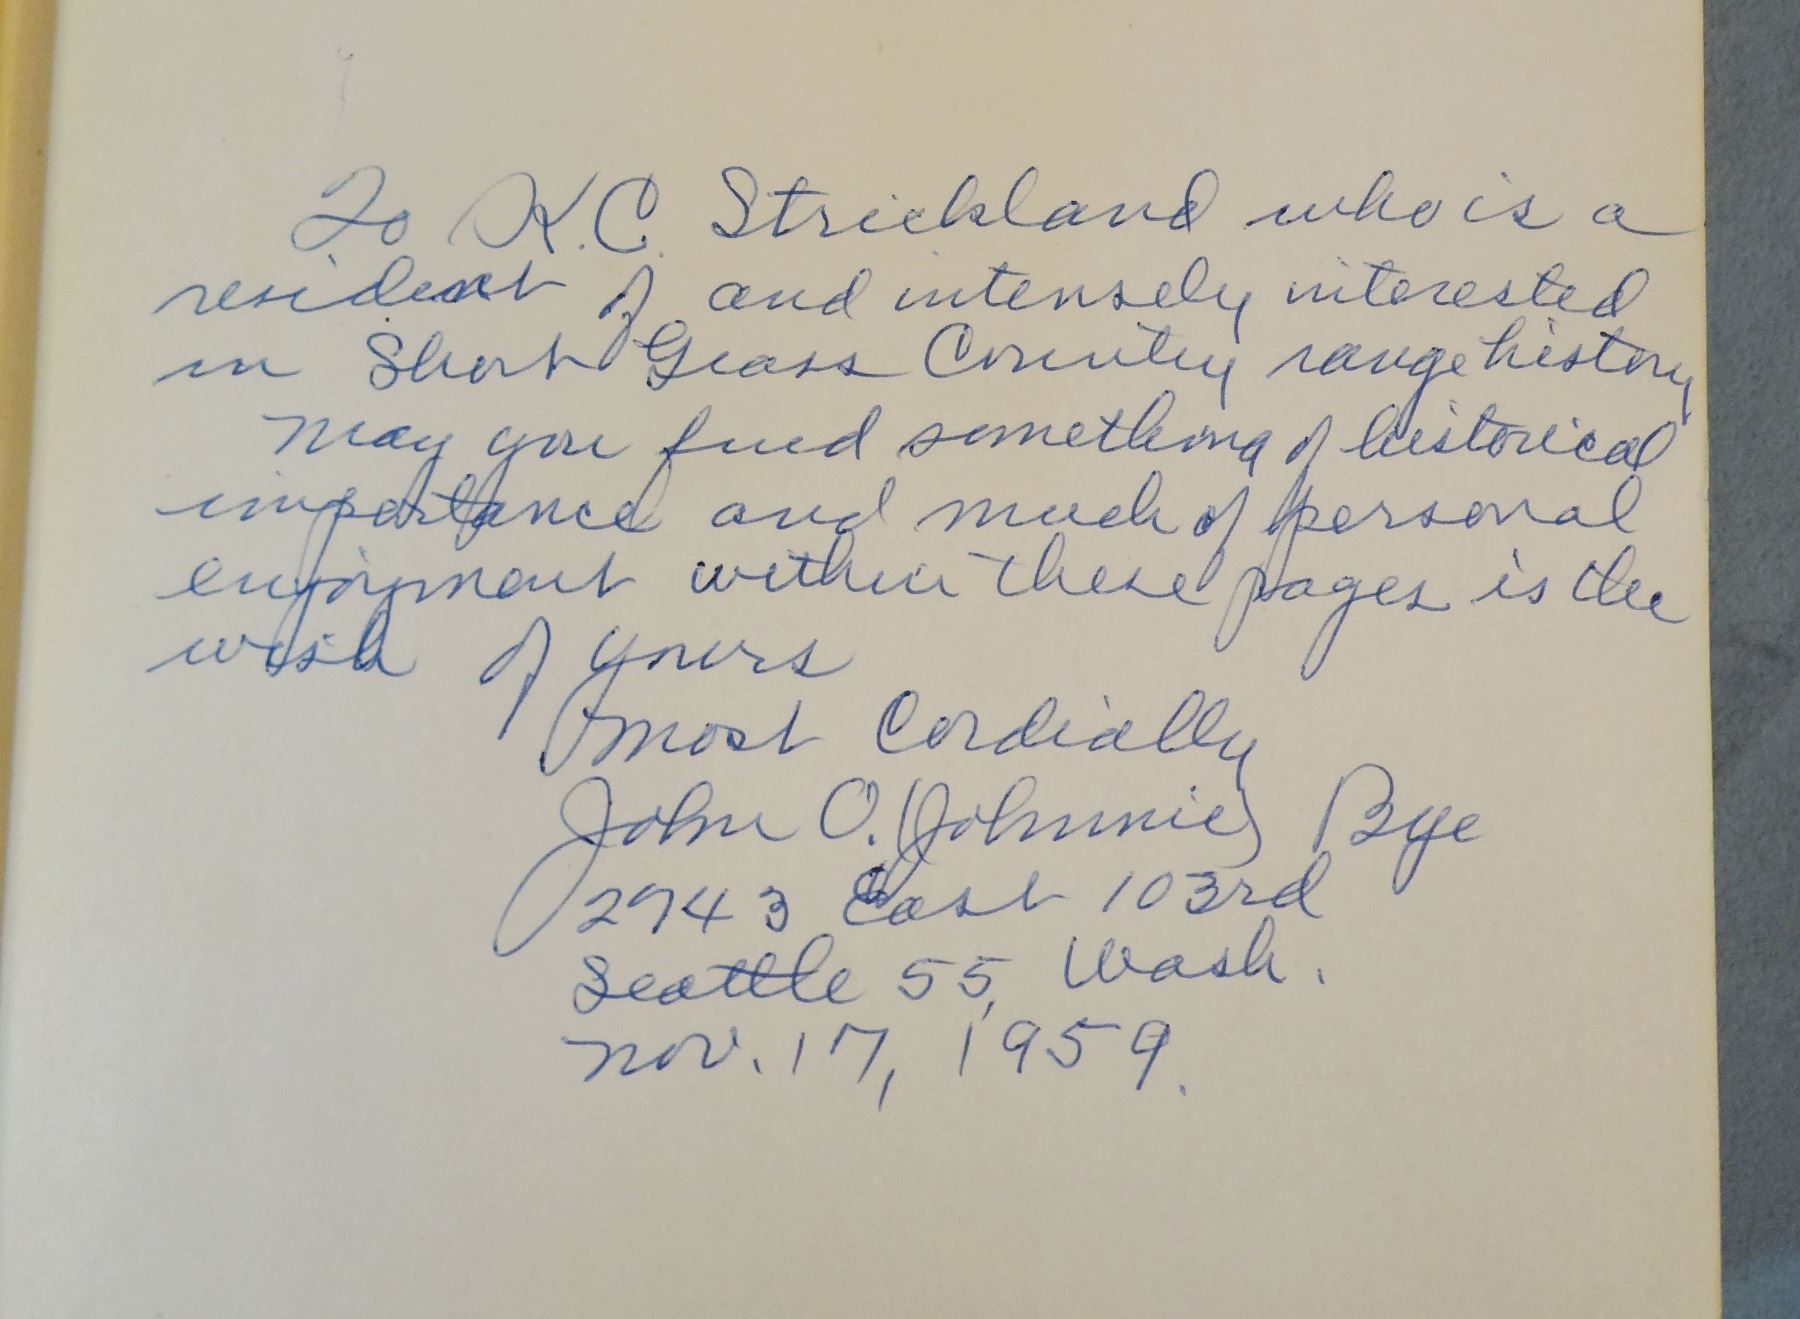 To K.C. Strickland who is a
resident of and intensely interested
in Short Grass Country range history
May you find something of historical
importance and much of personal
enjoyment within these pages is the
wish of yours
Most Cordially
John O. (Johnnie) Bye
2743 East 103rd
Seattle 55, Wash.
Nov. 17, 1959.